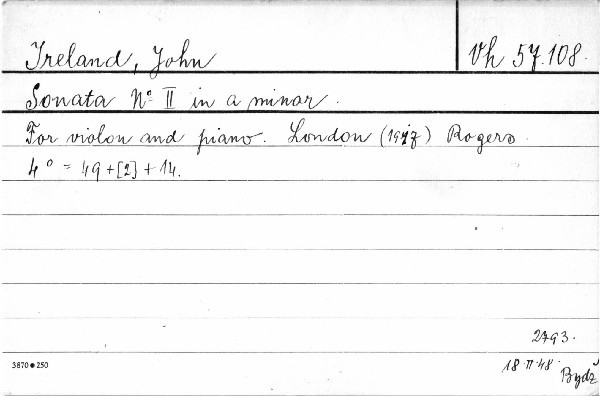 Ireland, John
Vh 57.108.
Sonata No II in a minor.
For violon and piano. London (1917) Rogers.
4° = 49 + [2] + 14.
2793.
3870 • 250
18 • II • 48 •
Bydž